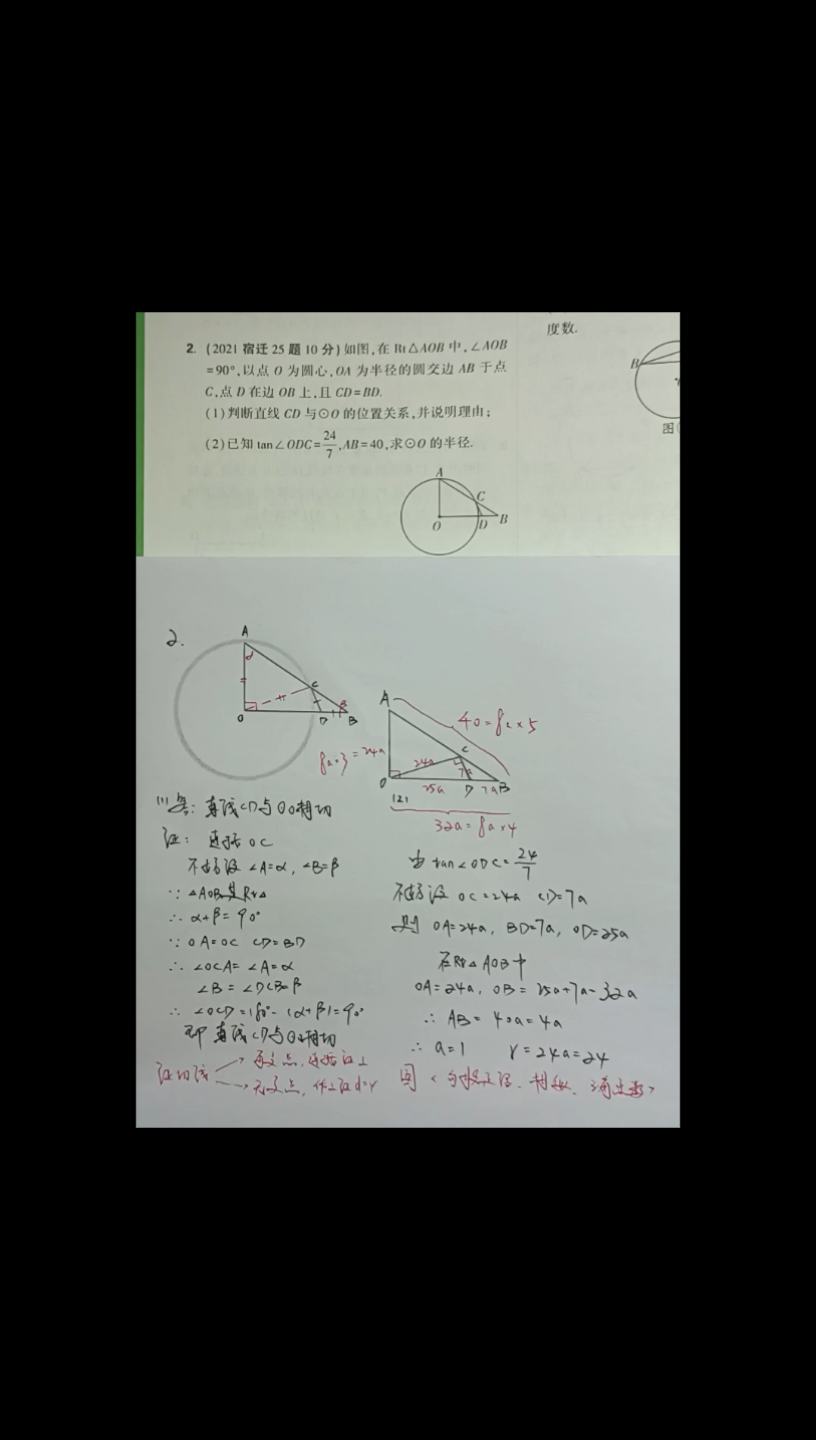 度数.
2. (2021 宿迁 25 题 10 分) 如图,在 Rt△AOB 中,∠AOB
=90°,以点 O 为圆心,OA 为半径的圆交边 AB 于点
C,点 D 在边 OB 上,且 CD=BD.
(1)判断直线 CD 与⊙O 的位置关系,并说明理由;
(2)已知 tan∠ODC=24/7,AB=40,求⊙O 的半径.
A
C
O
D
B
B
图
2.
A
α
C
O
D
B
β
A
40=8a×5
8a×3=24a
24a
C
7a
O
25a
D
7aB
32a=8a×4
(1)答: 直线CD与⊙O相切
证: 连接OC
不妨设 ∠A=α, ∠B=β
∵ △AOB是Rt△
∴ α+β=90°
∵ OA=OC CD=BD
∴ ∠OCA=∠A=α
∠B=∠DCB=β
∴ ∠OCD=180°-(α+β)=90°
即 直线CD与⊙O相切
证切线
有交点, 连接证⊥
无交点, 作⊥证d=r
(2)
由 tan∠ODC=24/7
不妨设 OC=24a CD=7a
则 OA=24a, BD=7a, OD=25a
在Rt△AOB中
OA=24a, OB=25a+7a=32a
∴ AB=40a=40
∴ a=1 r=24a=24
圆 勾股定理. 相似.